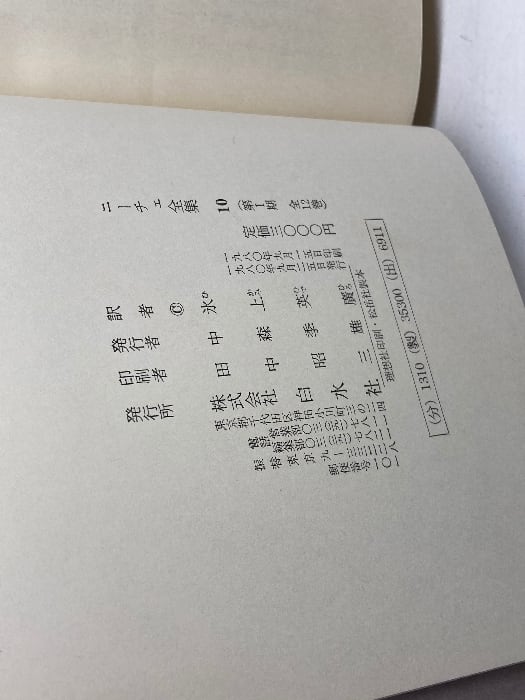 ニーチェ全集 10 (第Ⅰ期 全12巻)
定価三〇〇〇円
一九八〇年九月一五日印刷
一九八〇年九月二五日発行
訳者 © 氷上英廣
発行者 中森季雄
印刷者 田中昭三
発行所 株式会社 白水社
東京都千代田区神田小川町三の二四
振替東京九―三三二二八
郵便番号一〇一
理想社印刷・松岳社製本
(分) 1310 (製) 35300 (出) 6911